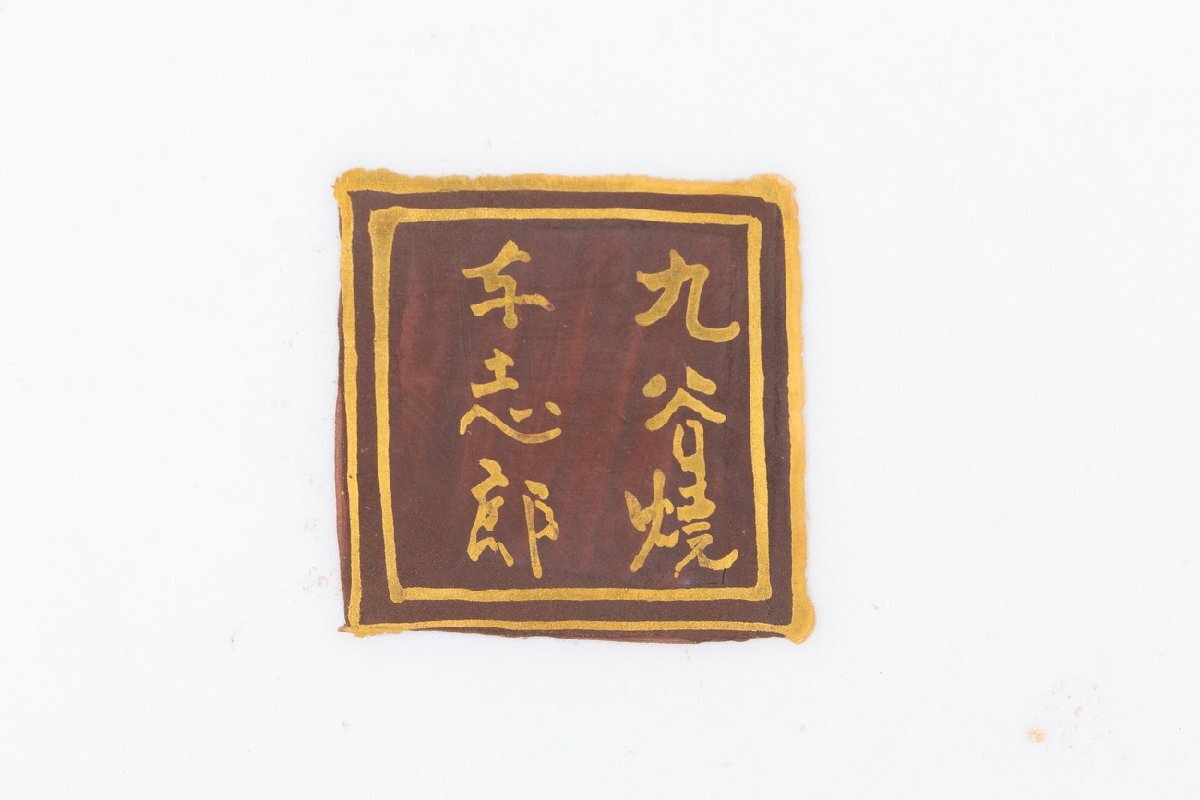 九谷焼
志郎